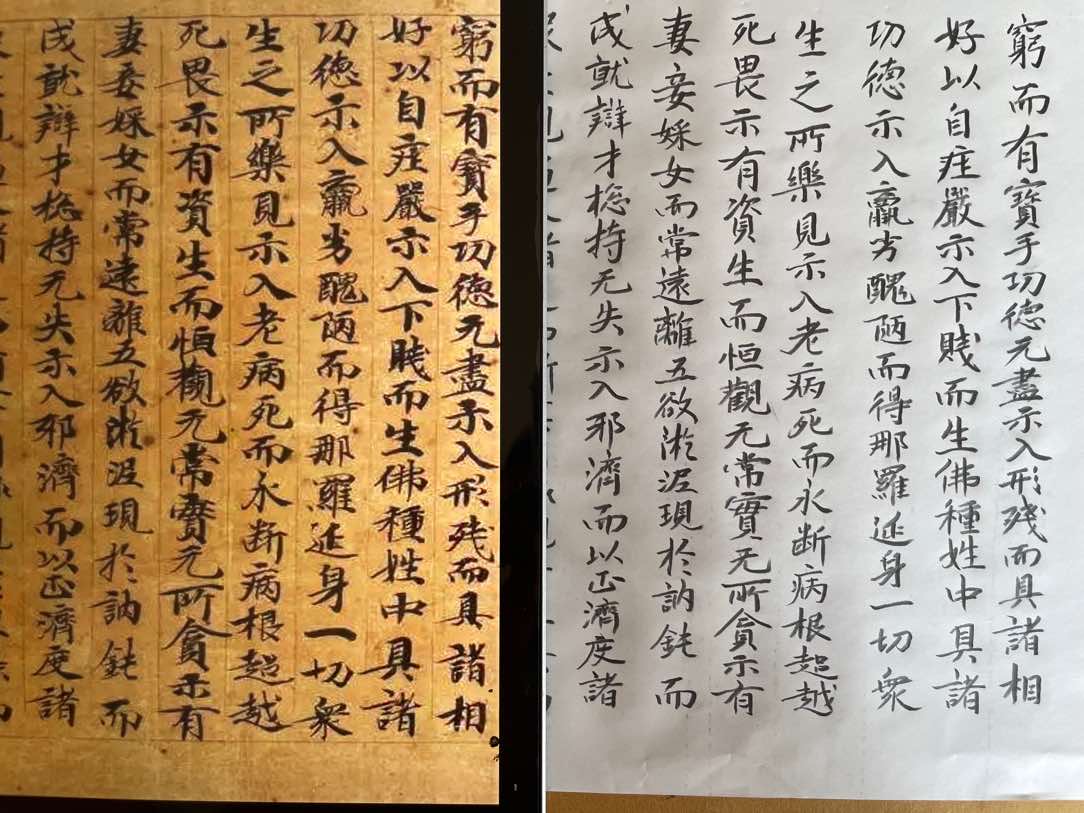 窮而有寶手功德无盡示入形残而具諸相
好以自庄嚴示入下賤而生佛種姓中具諸
功德示入羸劣醜陋而得那羅延身一切衆
生之所樂見示入老病死而永断病根超越
死畏示有資生而恒觀无常實无所貪示有
妻妾婇女而常遠離五欲淤泥現於訥鈍而
成就辯才捴持无失示入邪濟而以正濟度諸
窮而有寶手功德无盡示入形残而具諸相
好以自庄嚴示入下賤而生佛種姓中具諸
功德示入羸劣醜陋而得那羅延身一切衆
生之所樂見示入老病死而永断病根超越
死畏示有資生而恒觀无常實无所貪示有
妻妾婇女而常遠離五欲淤泥現於訥鈍而
成就辯才捴持无失示入邪濟而以正濟度諸